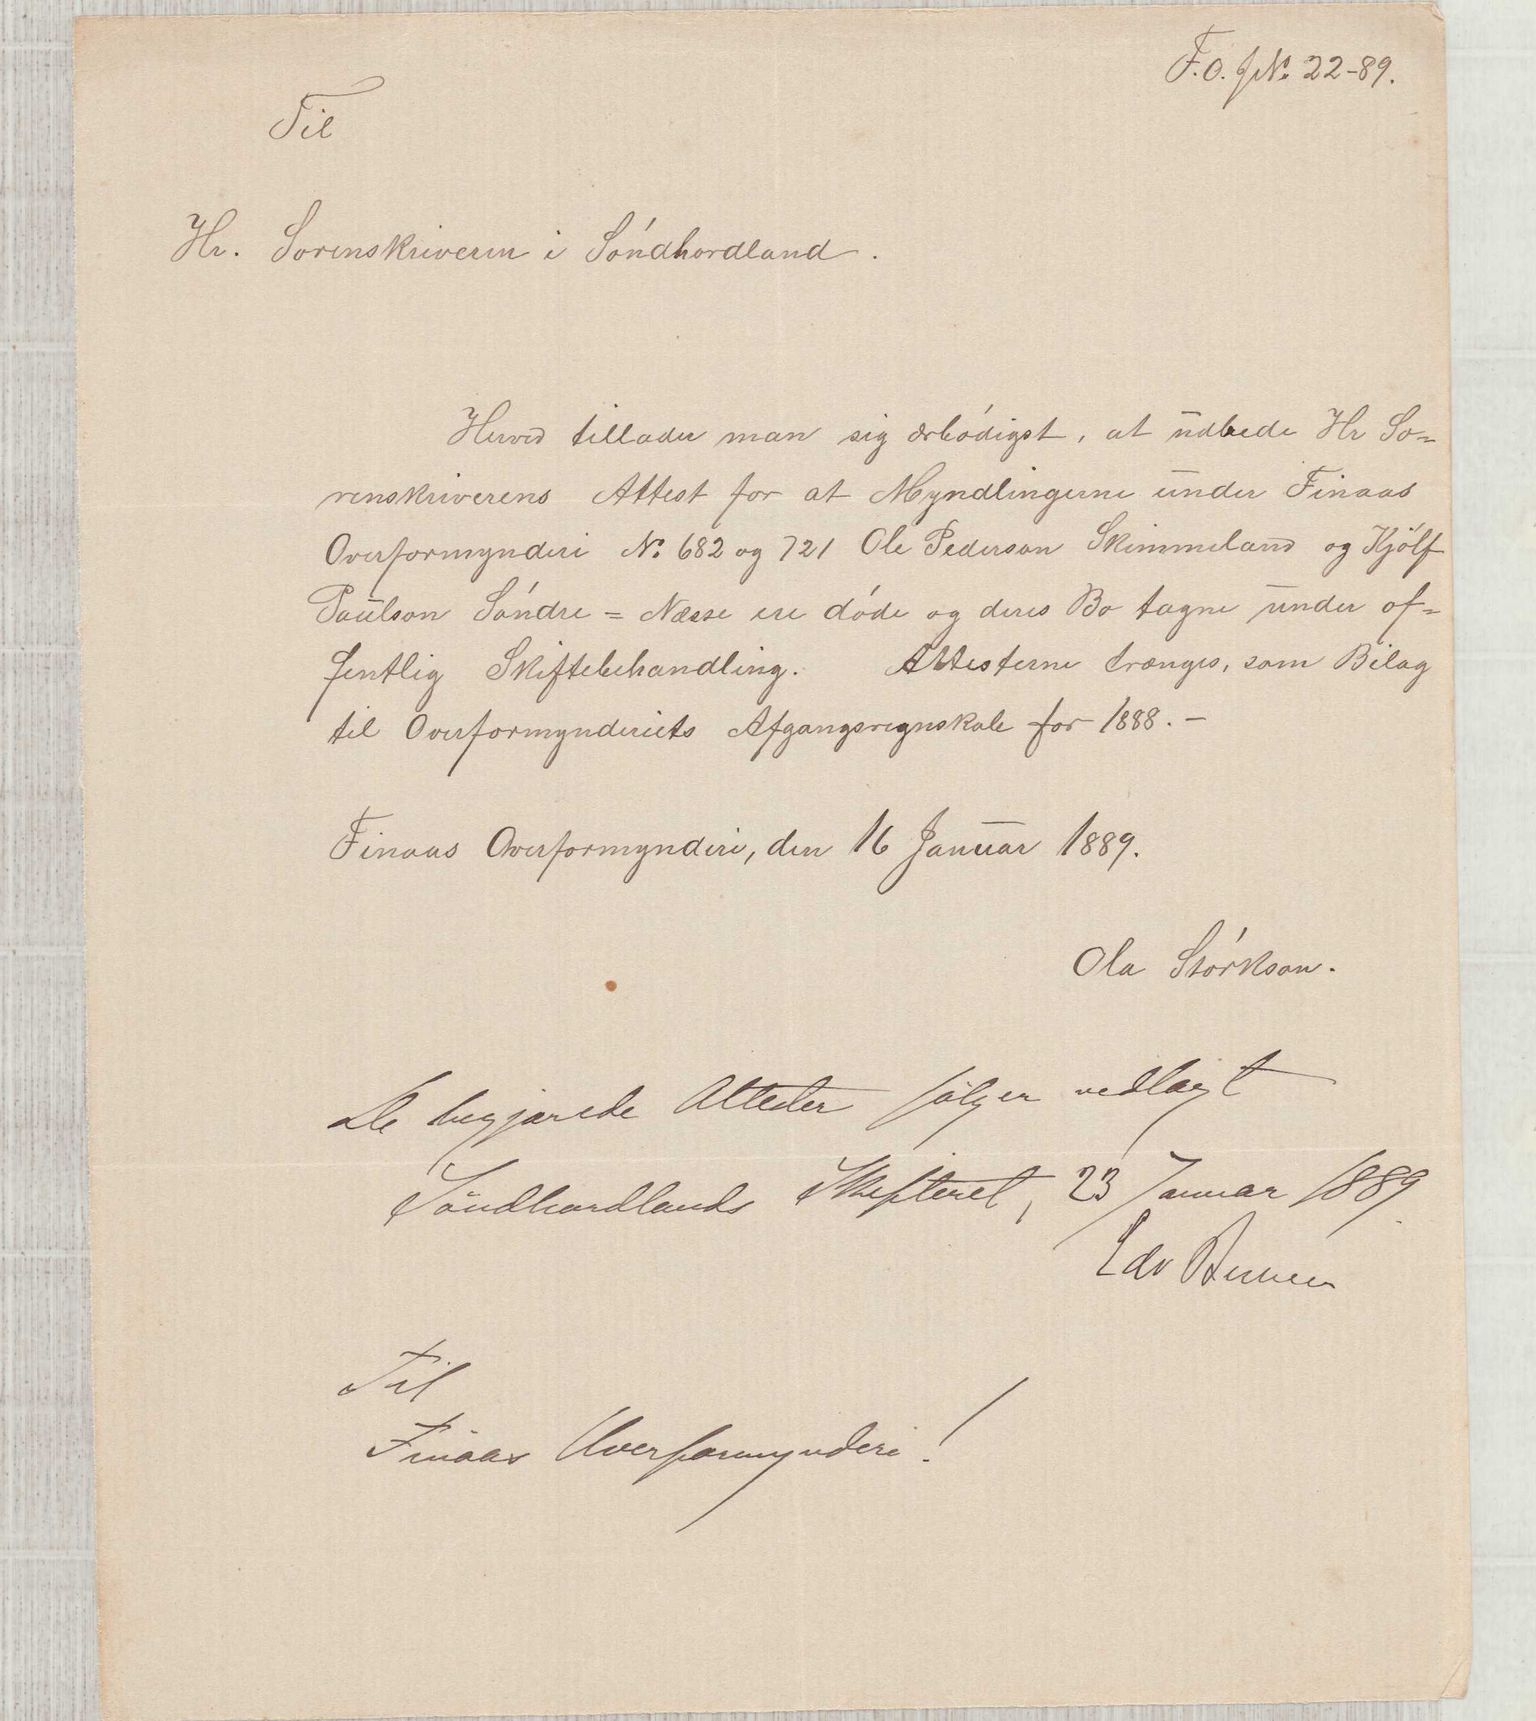 F.O. JN. 22-89.
Til
Hr. Sorenskriveren i Söndhordland.
Herved tillader man sig ærbödigst, at udbede Hr So=
renskriverens Attest for at Myndlingerne under Finaas
Overformynderi No 682 og 721 Ole Pederson Skimmeland og Kjölf
Paulson Söndre = Næsse ere döde og deres Bo tagne under of=
fentlig Skiftebehandling. Attesterne trænges, som Bilag
til Overformynderiets Afgangsregnskab for 1888. -
Finaas Overformynderi, den 16 Januar 1889.
Ola Störkson.
De begjærede Attester følger vedlagt
Söndhordlands Skifteret, 23 Januar 1889.
Edv
Til
Finaas Overformynderi!